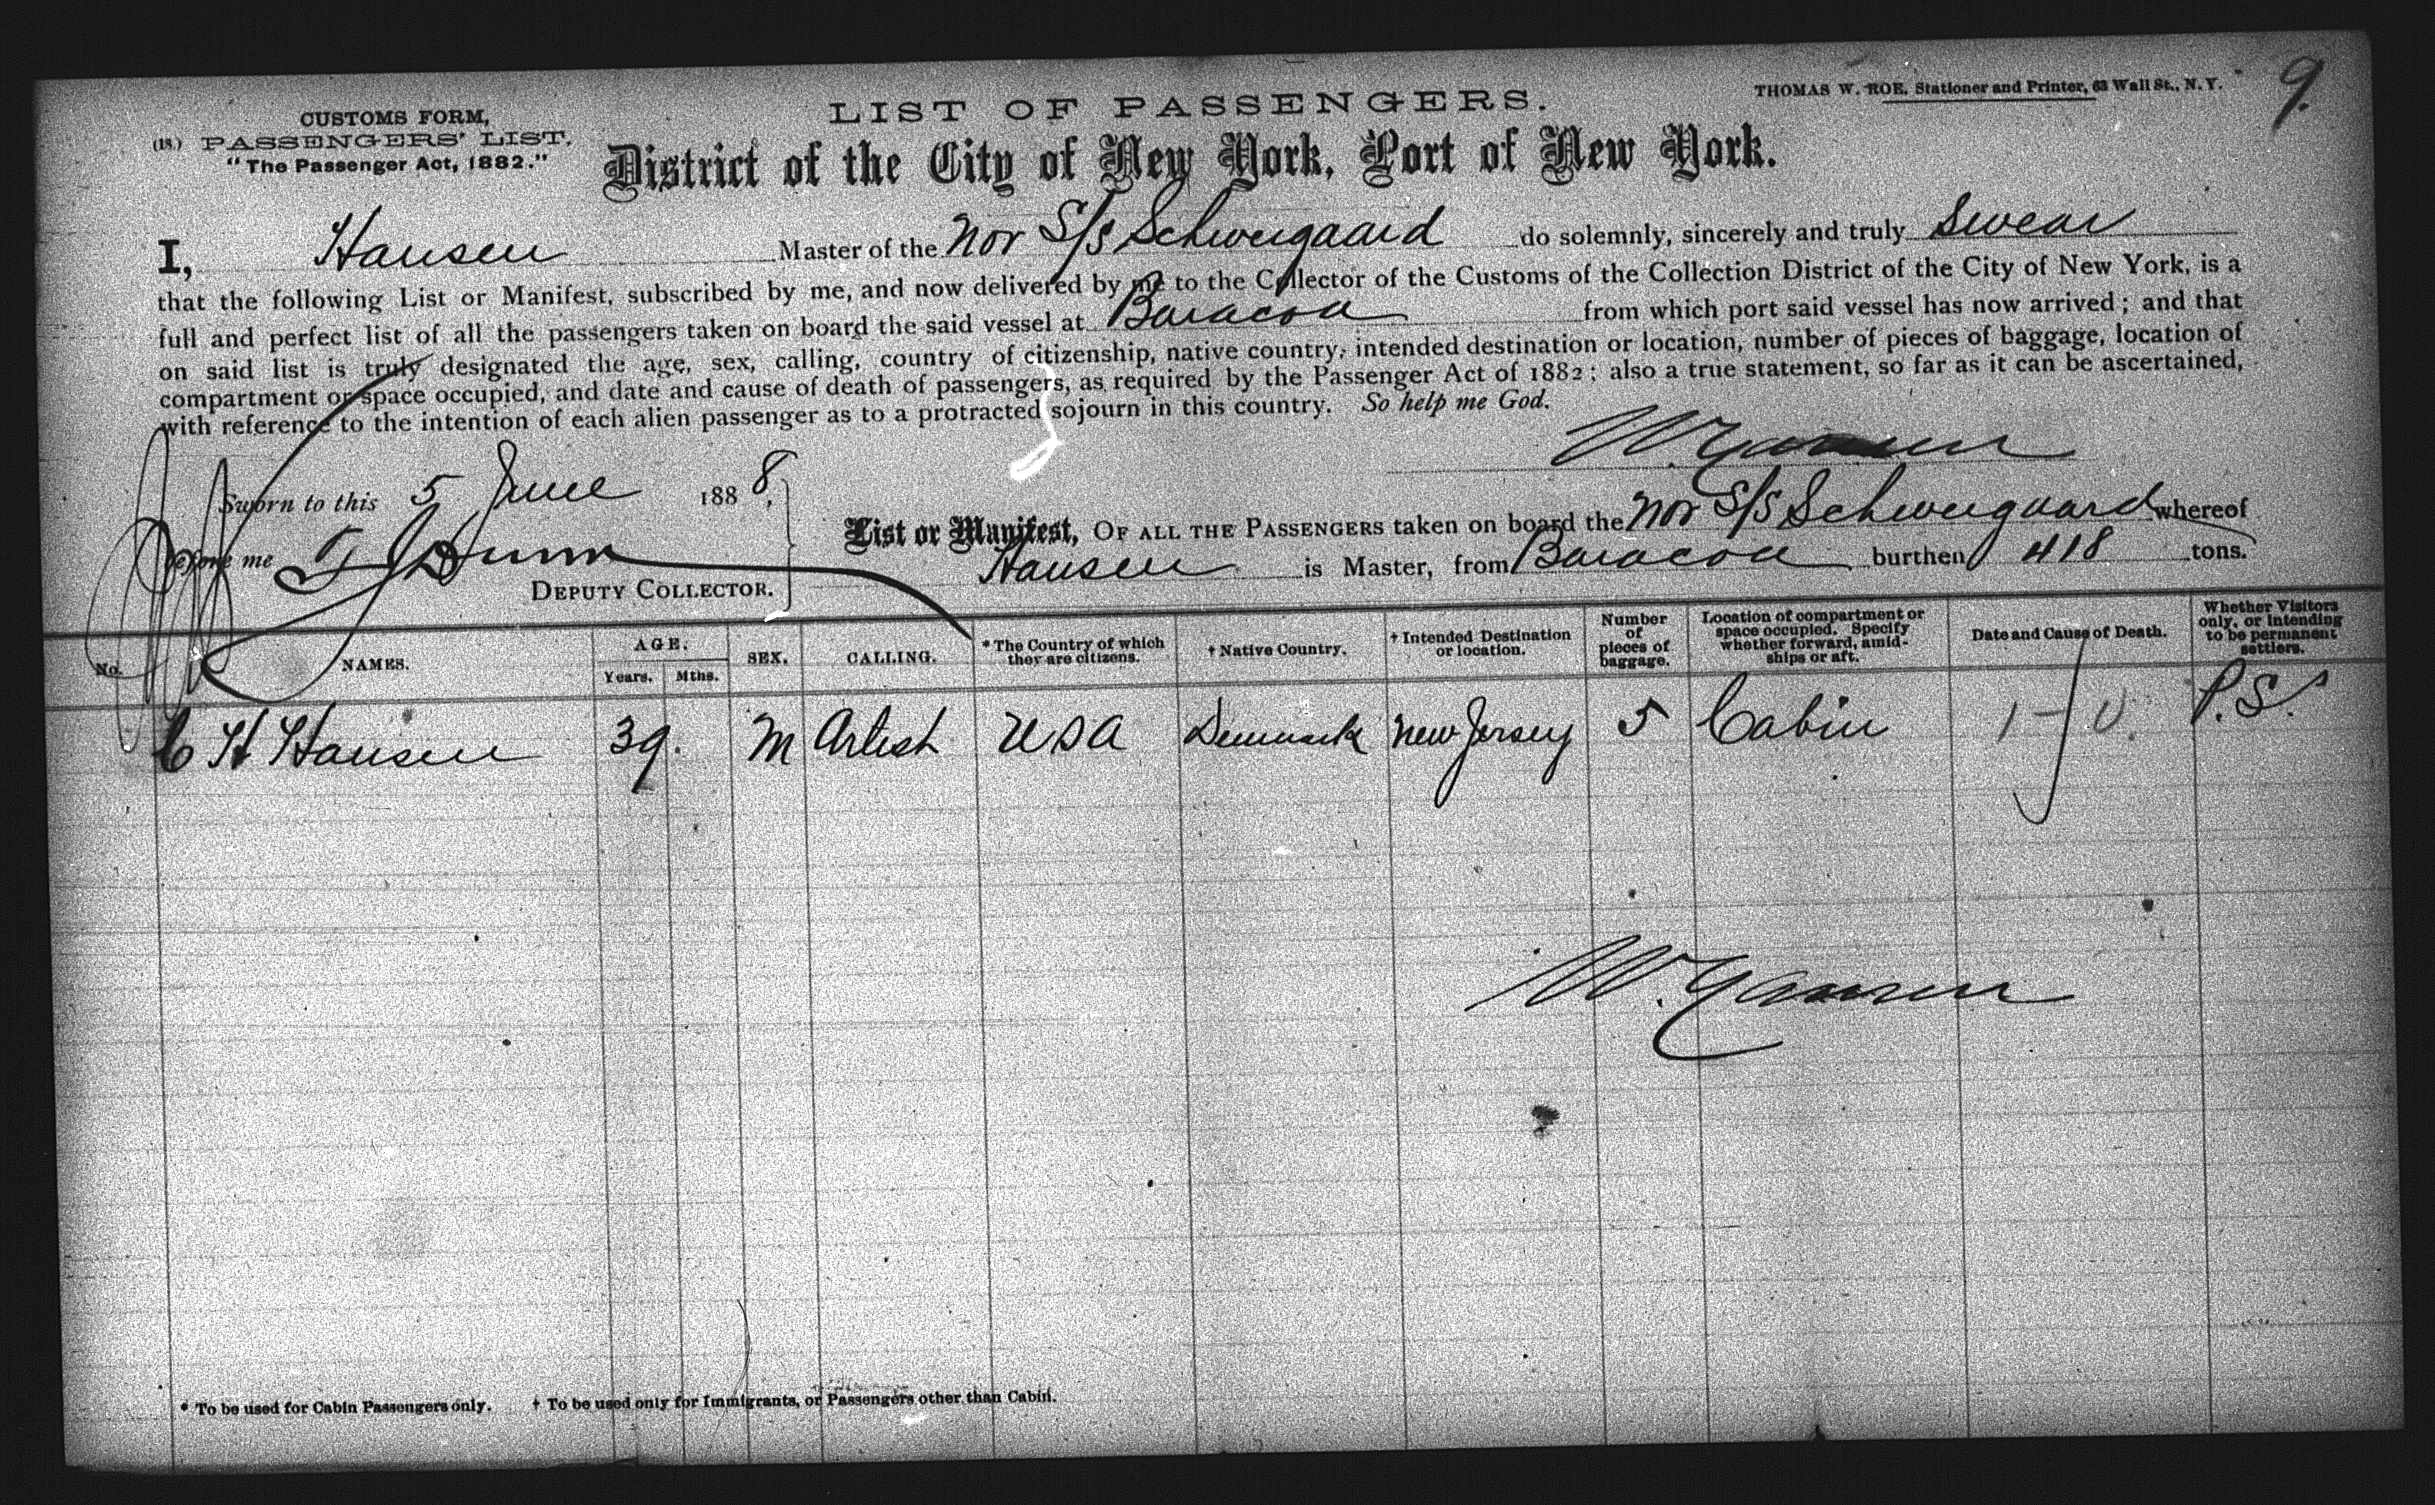 CUSTOMS FORM,
(18.) PASSENGERS' LIST.
"The Passenger Act, 1882."
LIST OF PASSENGERS.
THOMAS W. ROE, Stationer and Printer, 63 Wall St., N. Y.
9.
District of the City of New York, Port of New York.
I, Hansen Master of the Nor S/S Schweigaard do solemnly, sincerely and truly swear
that the following List or Manifest, subscribed by me, and now delivered by me to the Collector of the Customs of the Collection District of the City of New York, is a
full and perfect list of all the passengers taken on board the said vessel at Baracoa from which port said vessel has now arrived; and that
on said list is truly designated the age, sex, calling, country of citizenship, native country, intended destination or location, number of pieces of baggage, location of
compartment or space occupied, and date and cause of death of passengers, as required by the Passenger Act of 1882; also a true statement, so far as it can be ascertained,
with reference to the intention of each alien passenger as to a protracted sojourn in this country. So help me God.
Sworn to this 5 June 1888,
before me Dunn
DEPUTY COLLECTOR.
List or Manifest, OF ALL THE PASSENGERS taken on board the Nor S/S Schweigaard whereof
Hansen is Master, from Baracoa burthen 418 tons.
No. NAMES. AGE. Years. Mths. SEX. CALLING. * The Country of which they are citizens. † Native Country. † Intended Destination or location. Number of pieces of baggage. Location of compartment or space occupied. Specify whether forward, amid-ships or aft. Date and Cause of Death. Whether Visitors only, or intending to be permanent settlers.
C H Hansen 39. M Artist USA Denmark New Jersey 5 Cabin P.S.
* To be used for Cabin Passengers only. † To be used only for Immigrants, or Passengers other than Cabin.